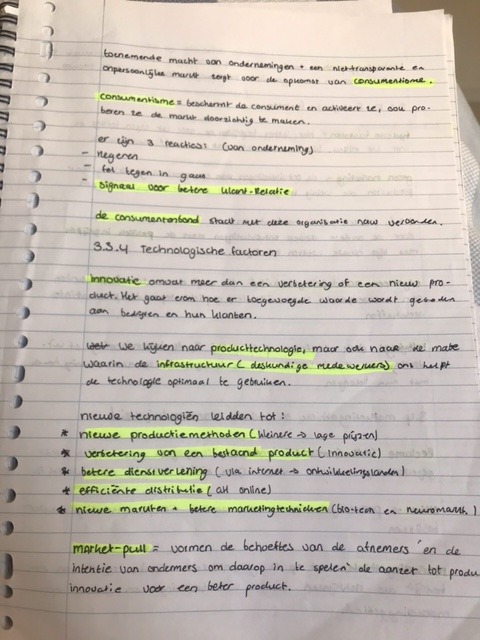 toenemende macht van ondernemingen + een niet-transparante en
onpersoonlijke markt zorgt voor de opkomst van consumentisme.
consumentisme = beschermt de consument en activeert ze, ook pro-
beren ze de markt doorzichtig te maken.
er zijn 3 reacties: (van onderneming)
- negeren
- fel tegen in gaan
- signaal voor betere klant-relatie
de consumentenbond staat met deze organisatie nauw verbonden.
3.3.4 Technologische factoren
innovatie omvat meer dan een verbetering of een nieuw pro-
duct. Het gaat erom hoe er toegevoegde waarde wordt geboden
aan bedrijven en hun klanten.
we kijken naar producttechnologie, maar ook naar de mate
waarin de infrastructuur (deskundige medewerkers) ons helpt
de technologie optimaal te gebruiken.
nieuwe technologiën leidden tot:
* nieuwe productiemethoden (kleinere → lage prijzen)
* verbetering van een bestaand product (innovatie)
* betere dienstverlening (via internet → ontwikkelingslanden)
* efficiënte distributie (all online)
* nieuwe markten + betere marketingtechnieken (bio-tech en neuromark.)
market-pull = vormen de behoeftes van de afnemers en de
intentie van ondernemers om daarop in te spelen de aanzet tot produ
innovatie voor een beter product.